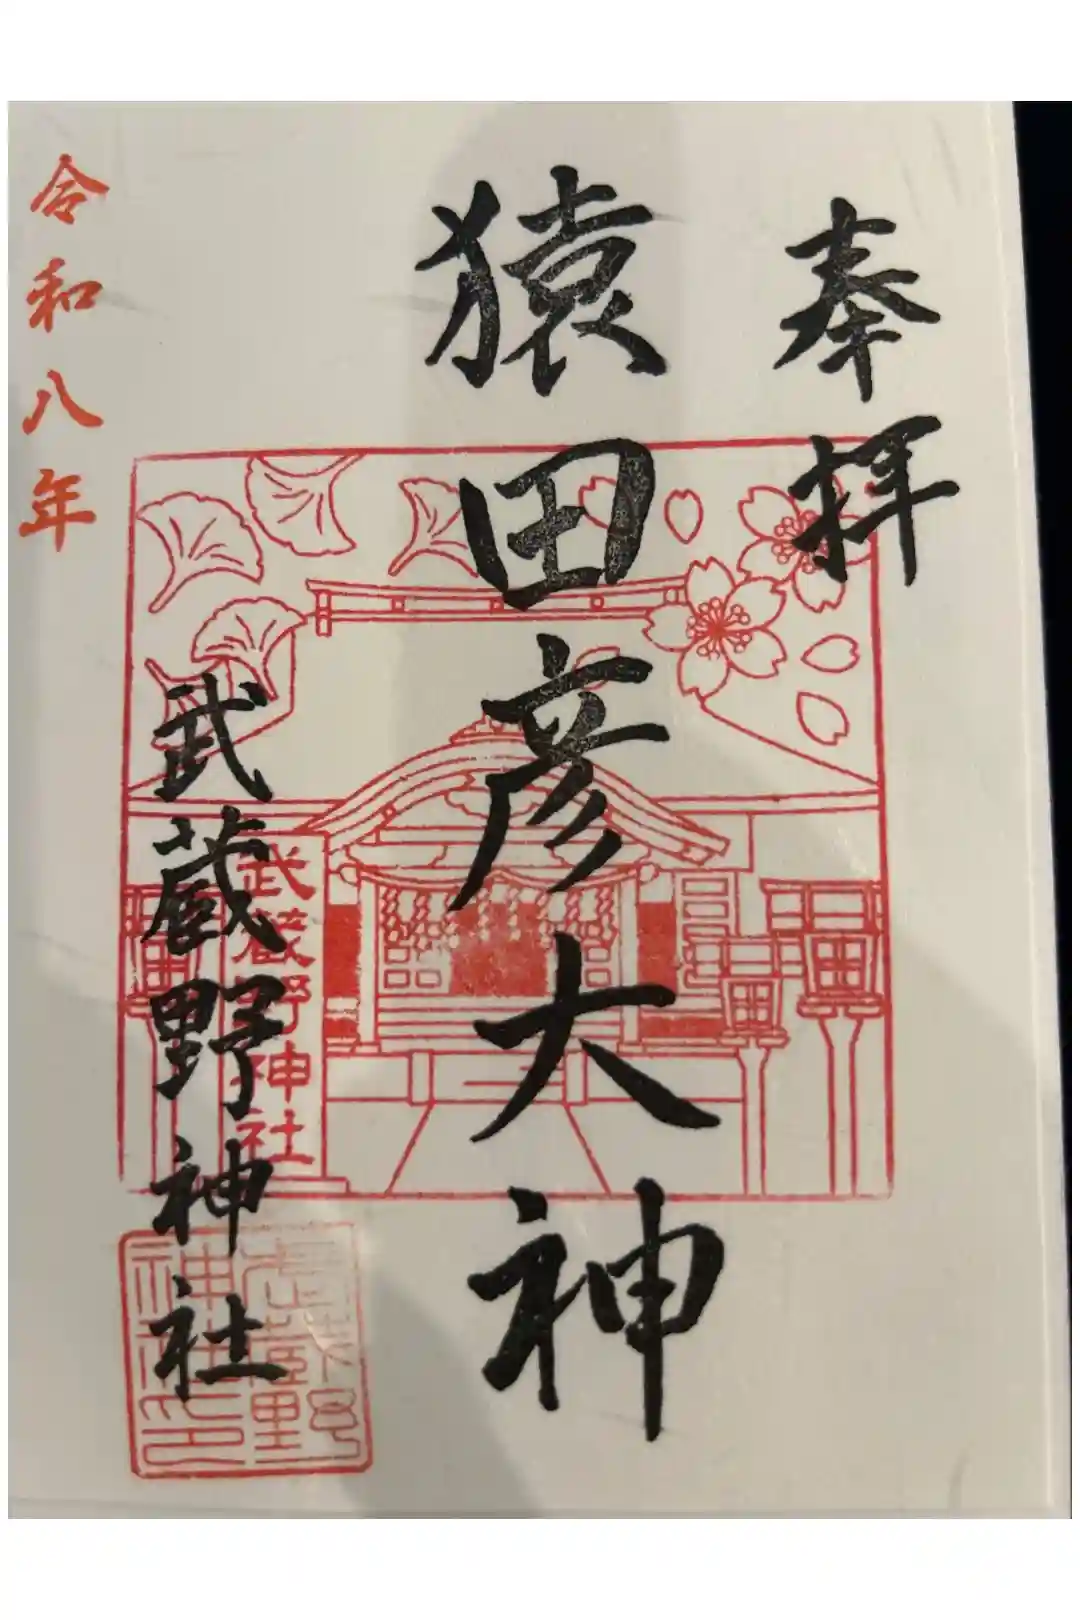 奉拝
猿田彦大神
武蔵野神社
武蔵野神社
武蔵野神社印
令和八年